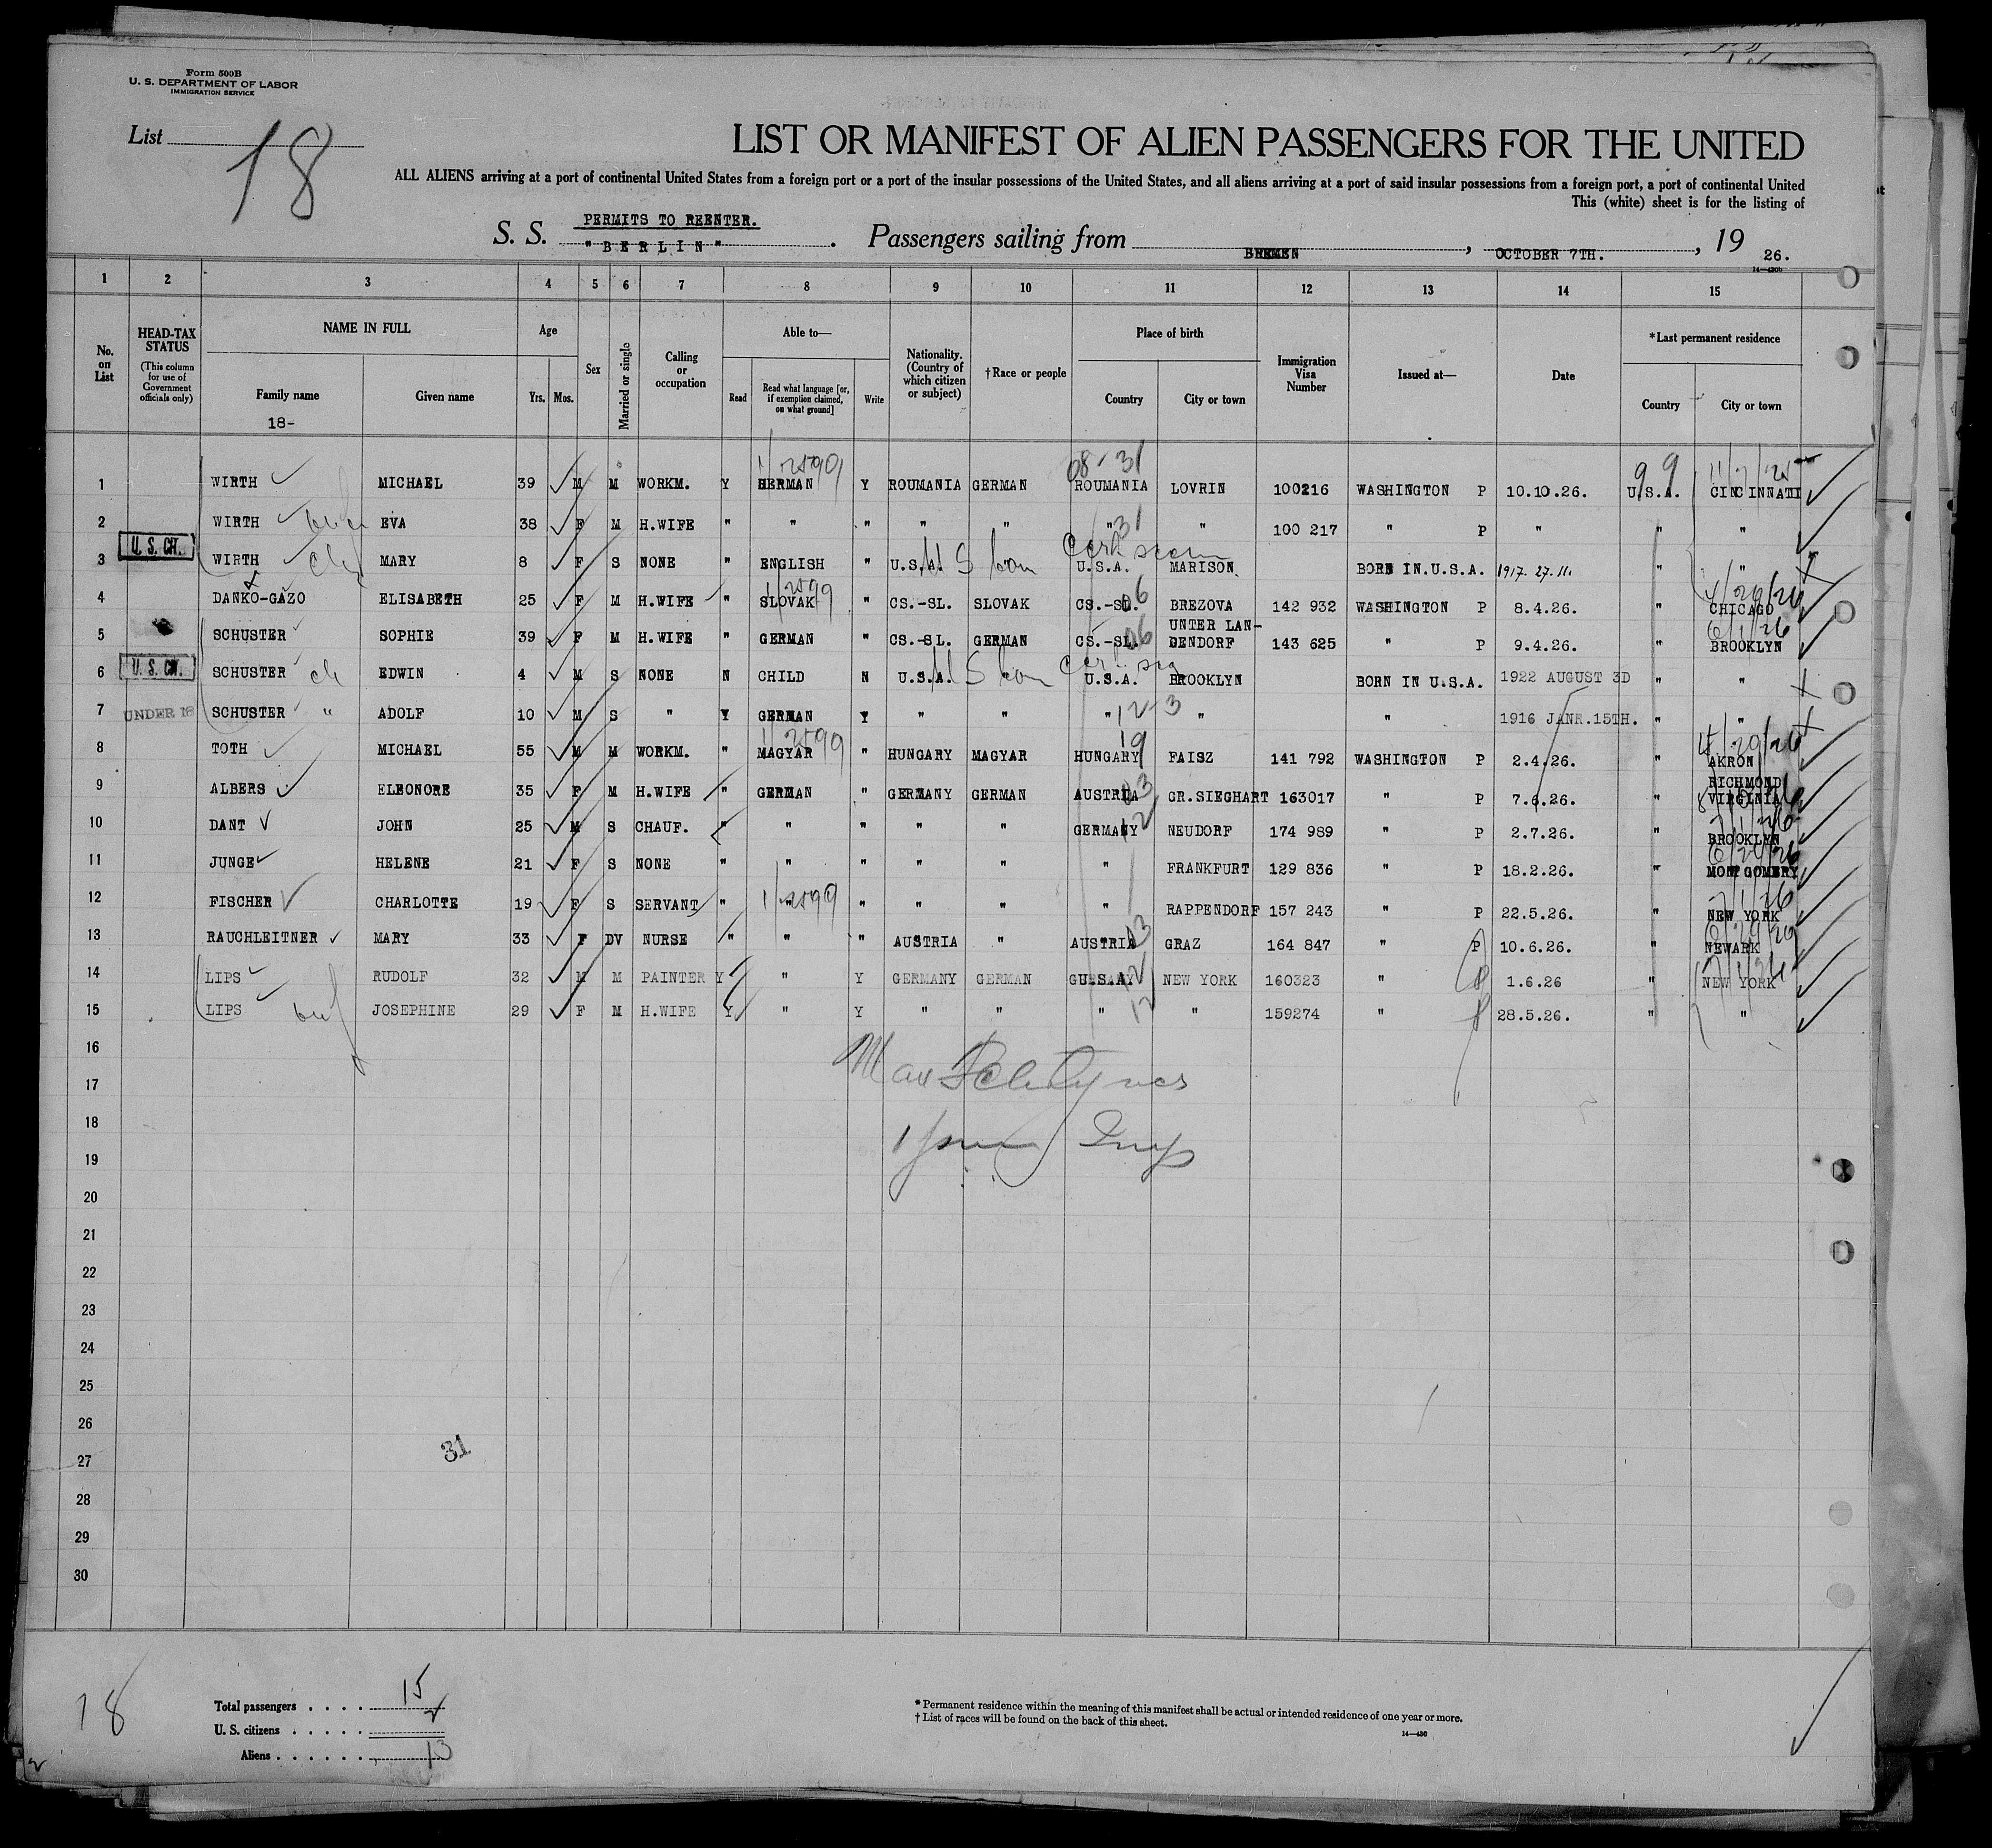 Form 500B
U. S. DEPARTMENT OF LABOR
IMMIGRATION SERVICE
List 18
LIST OR MANIFEST OF ALIEN PASSENGERS FOR THE UNITED
ALL ALIENS arriving at a port of continental United States from a foreign port or a port of the insular possessions of the United States, and all aliens arriving at a port of said insular possessions from a foreign port, a port of continental United
This (white) sheet is for the listing of
PERMITS TO REENTER.
S. S. "BERLIN". Passengers sailing from BREMEN, OCTOBER 7TH., 19 26.
14—430b
1 2 3 4 5 6 7 8 9 10 11 12 13 14 15
No. on List
HEAD-TAX STATUS
(This column for use of Government officials only)
NAME IN FULL
Family name
18-
Given name
Age
Yrs. Mos.
Sex
Married or single
Calling or occupation
Able to—
Read
Read what language [or, if exemption claimed, on what ground]
Write
Nationality. (Country of which citizen or subject)
†Race or people
Place of birth
Country
City or town
Immigration Visa Number
Issued at—
Date
*Last permanent residence
Country
City or town
1 WIRTH MICHAEL 39 M M WORKM. Y GERMAN Y ROUMANIA GERMAN ROUMANIA LOVRIN 100216 WASHINGTON P 10.10.26. U.S.A. CINCINNATI
2 WIRTH EVA 38 F M H.WIFE " " " " " " " 100 217 " P " " "
U. S. CH.
3 WIRTH MARY 8 F S NONE " ENGLISH " U.S.A. U S born U.S.A. MARISON. BORN IN.U.S.A. 1917. 27. 11. " "
4 DANKO-GAZO ELISABETH 25 F M H.WIFE " SLOVAK " CS.-SL. SLOVAK CS.-SL. BREZOVA 142 932 WASHINGTON P 8.4.26. " CHICAGO
5 SCHUSTER SOPHIE 39 F M H.WIFE " GERMAN " CS.-SL. GERMAN CS.-SL. UNTER LAN-DENDORF 143 625 " P 9.4.26. " BROOKLYN
U. S. CH.
6 SCHUSTER ch EDWIN 4 M S NONE N CHILD N U.S.A. U S born U.S.A. BROOKLYN BORN IN U.S.A. 1922 AUGUST 3D " "
7 UNDER 18 SCHUSTER " ADOLF 10 M S " Y GERMAN Y " " " " " 1916 JANR.15TH. " "
8 TOTH MICHAEL 55 M M WORKM. " MAGYAR " HUNGARY MAGYAR HUNGARY FAISZ 141 792 WASHINGTON P 2.4.26. " AKRON
9 ALBERS ELEONORE 35 F M H.WIFE " GERMAN " GERMANY GERMAN AUSTRIA GR.SIEGHART 163017 " P 7.6.26. " RICHMOND VIRGINIA
10 DANT JOHN 25 M S CHAUF. " " " " " GERMANY NEUDORF 174 989 " P 2.7.26. " BROOKLYN
11 JUNGE HELENE 21 F S NONE " " " " " " FRANKFURT 129 836 " P 18.2.26. " MONTGOMERY
12 FISCHER CHARLOTTE 19 F S SERVANT " " " " " " RAPPENDORF 157 243 " P 22.5.26. " NEW YORK
13 RAUCHLEITNER MARY 33 F DV NURSE " " " AUSTRIA " AUSTRIA GRAZ 164 847 " P 10.6.26. " NEWARK
14 LIPS RUDOLF 32 M M PAINTER Y " Y GERMANY GERMAN U.S.A. NEW YORK 160323 " P 1.6.26 " NEW YORK
15 LIPS JOSEPHINE 29 F M H.WIFE Y " Y " " " " 159274 " P 28.5.26. " "
16
17
18
19
20
21
22
23
24
25
26
27
31
28
29
30
18
Total passengers . . . . 15
U. S. citizens . . . . . 2
Aliens . . . . . . 13
* Permanent residence within the meaning of this manifest shall be actual or intended residence of one year or more.
† List of races will be found on the back of this sheet.
14—430